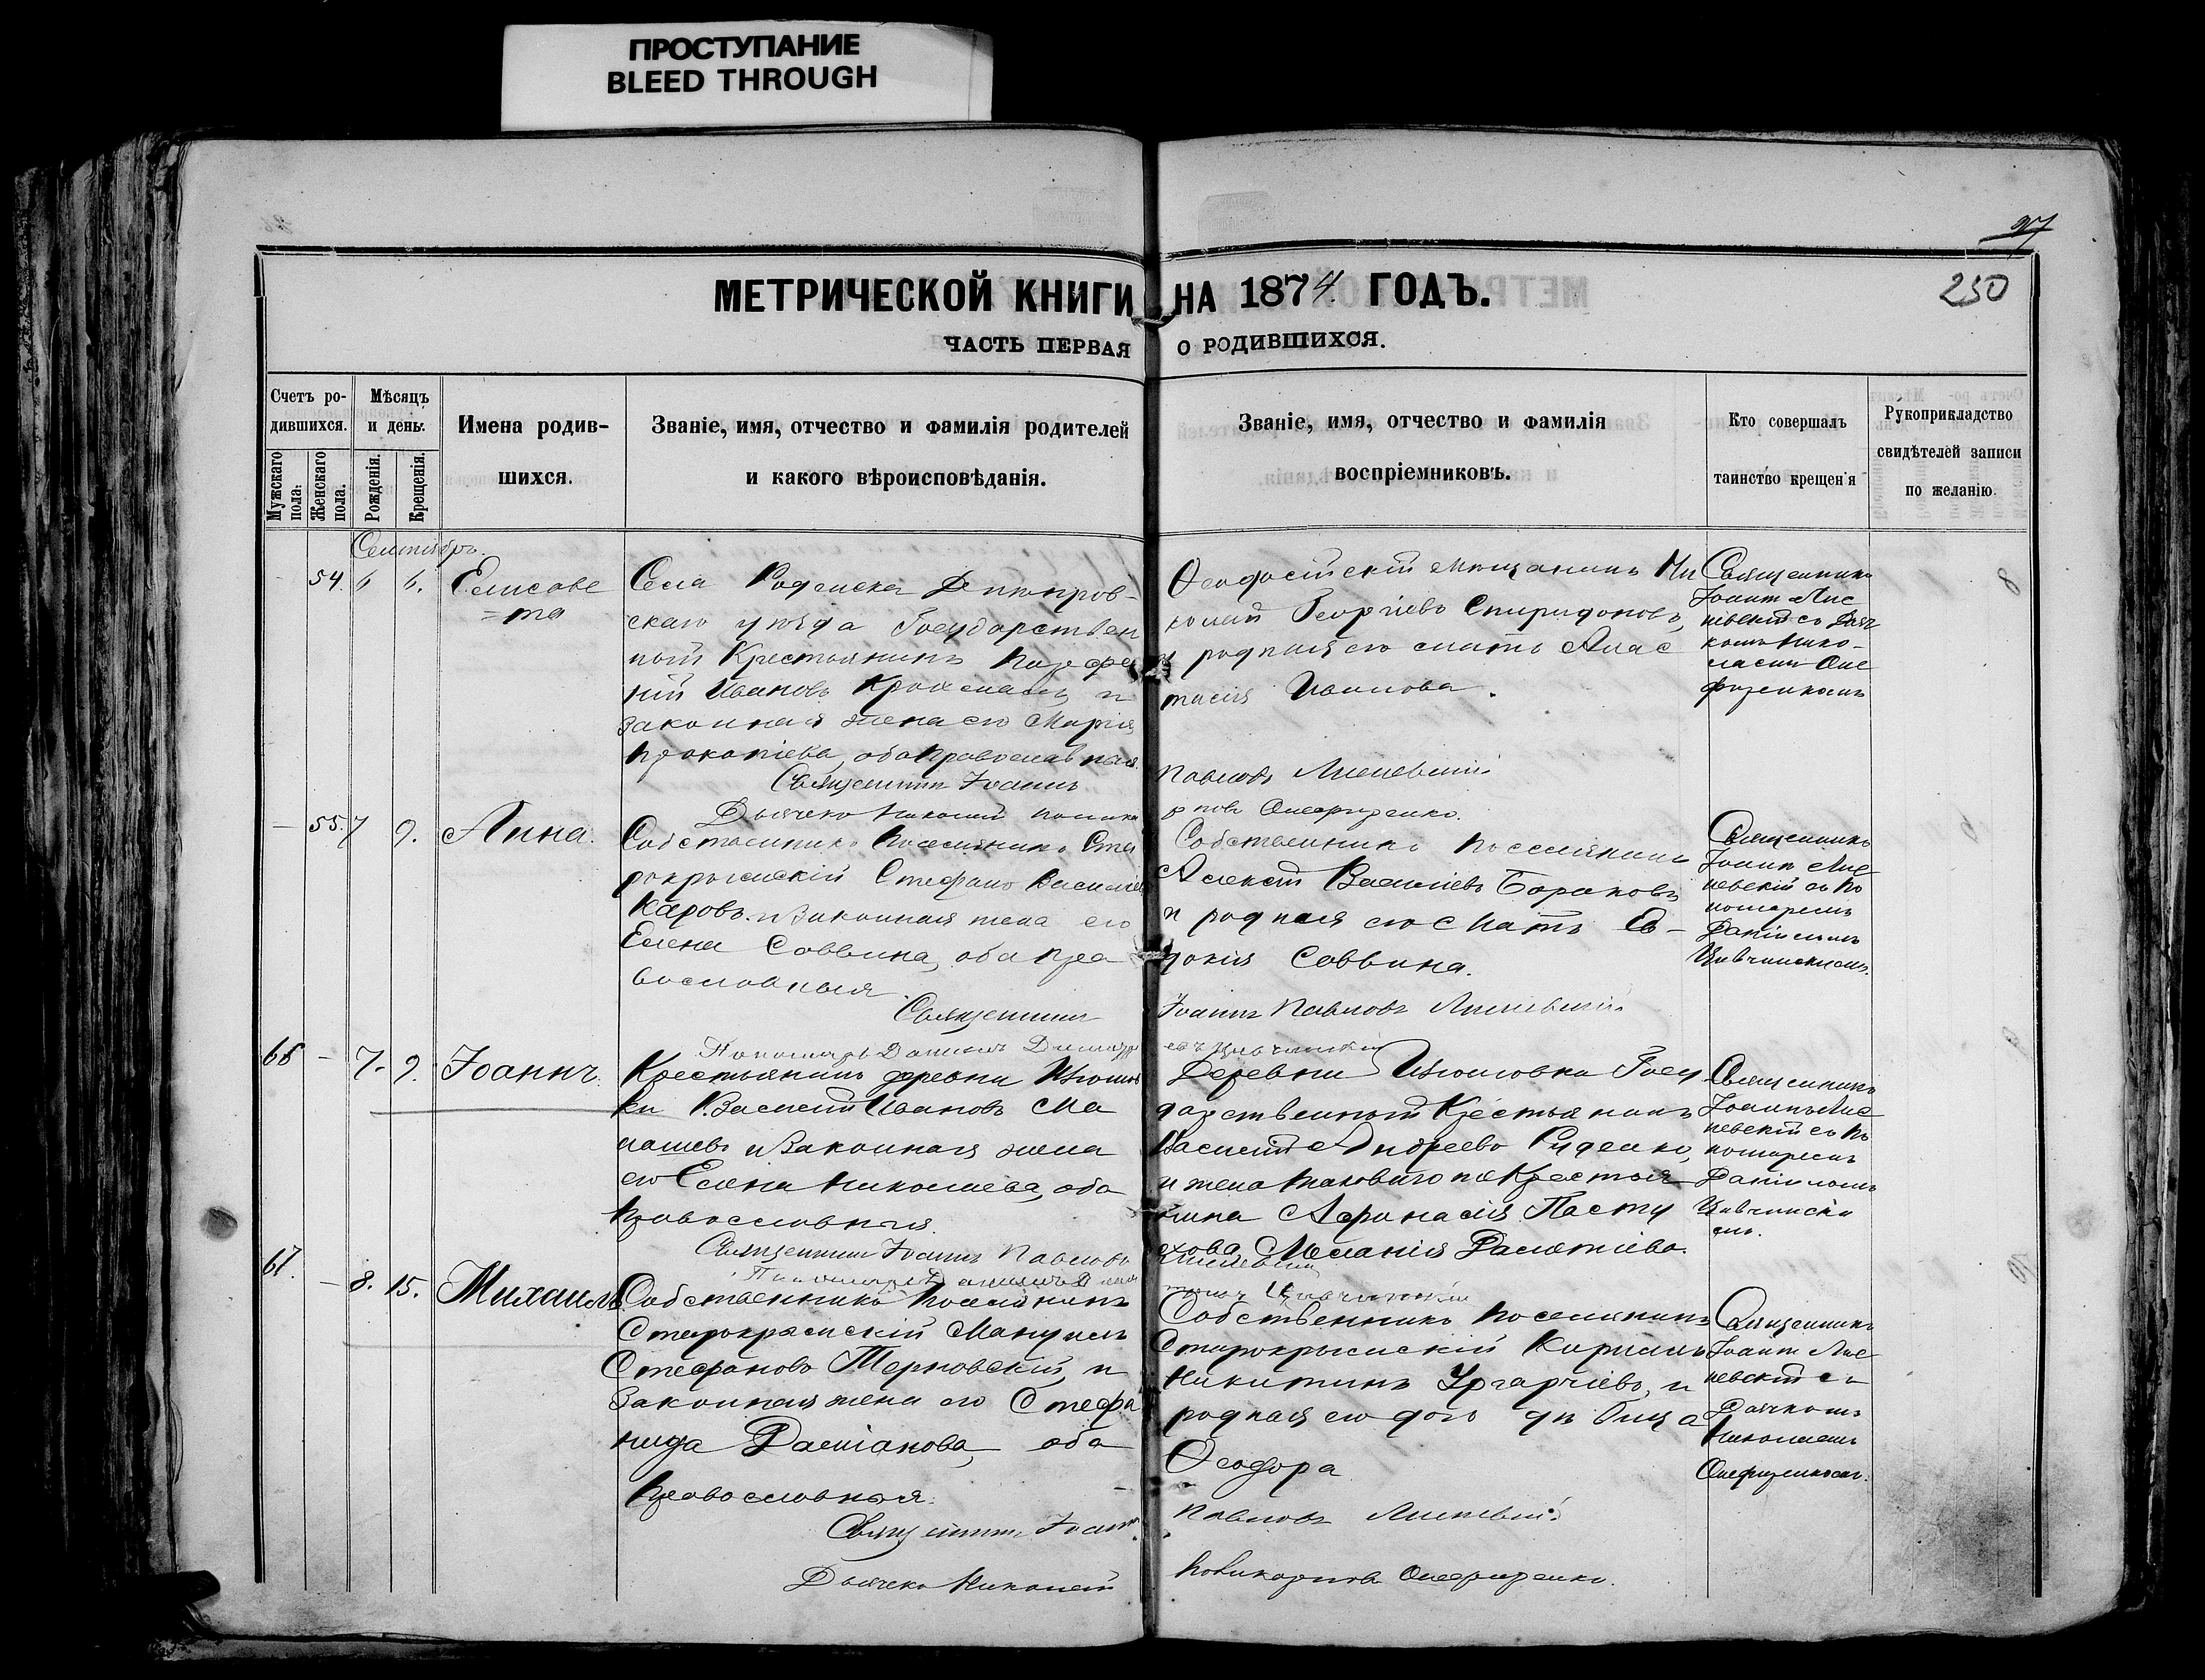 ПРОСТУПАНИЕ
BLEED THROUGH
27
250
МЕТРИЧЕСКОЙ КНИГИ НА 1874 ГОДЪ.
ЧАСТЬ ПЕРВАЯ О РОДИВШИХСЯ.
Счетъ ро-
дившихся.
Мужскаго пола.
Женскаго пола.
Мѣсяцъ
и день.
Рожденія.
Крещенія.
Имена родив-
шихся.
Званіе, имя, отчество и фамилія родителей
и какого вѣроисповѣданія.
Званіе, имя, отчество и фамилія
воспріемниковъ.
Кто совершалъ
таинство крещенія
Рукоприкладство
свидѣтелей записи
по желанію.
Сентябрь.
54. 6 6.
Елисаве
=та
Села Днѣпров-
скаго уѣзда Государствен
ный Крестьянинъ
Ивановъ и
законная жена его Марія
Прокопіева, оба православные.
Священникъ Іоаннъ
Дьячекъ Николай
Ѳеодосійскій мѣщанинъ Ни
колай Георгіевъ Спиридоновъ,
и родная его мать Анас
тасія Иванова.
Павловъ
Священникъ
Іоаннъ Лис
невскій съ Дяч
комъ Нико-
лаемъ
— 55. 7 9.
Анна.
Собственникъ Поселянинъ Ста
рокрымскій Стефанъ Василіев
Каровъ и Законная жена его
Елена Саввина, оба пра
вославные.
Священникъ
Собственникъ Поселянинъ
Алексѣй Василіевъ Бораковъ
и родная его мать Ев-
докія Саввина.
Іоаннъ Павловъ
Священникъ
Іоаннъ Лис
невскій съ По
номаремъ
Даніиломъ
66 — 7. 9.
Іоаннъ.
Пономарь Даніилъ
Крестьянинъ деревни Изюмов
ки Василій Ивановъ Ма
лашевъ и Законная жена
его Елена Николаева, оба
Православные.
Священникъ Іоаннъ Павловъ
Деревни Изюмовка Госу
дарственный Крестьянинъ
Василій Андреевъ Руденко,
и жена таковаго же Крестья
нина Афанасія Пасту
хова, Меланія
Священникъ
Іоаннъ Лис
невскій съ По
номаремъ
Даніиломъ
67. — 8. 15.
Михаилъ.
Собственникъ Поселянинъ
Старокрымскій Мануилъ
Стефановъ Терновскій, и
Законная жена его Стефа
нида Даміанова, оба
Православные.
Священникъ Іоаннъ
Дьячекъ Николай
Собственникъ Поселянинъ
Старокрымскій Кириллъ
Никитинъ и
родная его дочь дѣвица
Ѳеодора
Павловъ
Поликарповъ
Священникъ
Іоаннъ Лис
невскій съ
Дячкомъ
Николаемъ